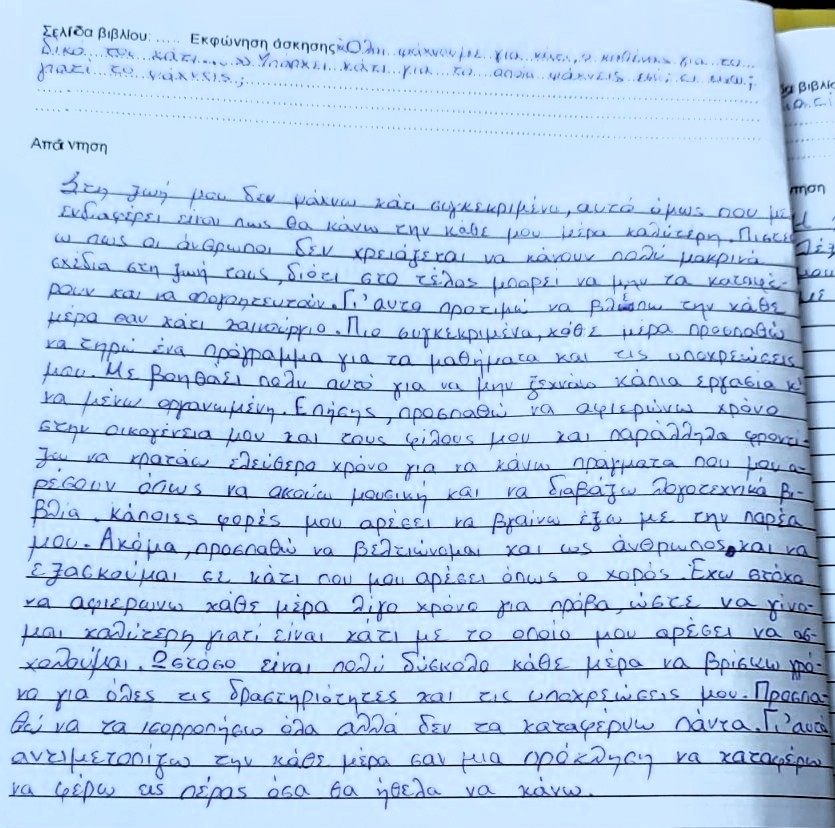 Σελίδα βιβλίου: ..... Εκφώνηση άσκησης: «Όλοι ψάχνουμε για κάτι, ο καθένας για το
δικό του κάτι...» Υπάρχει κάτι για το οποίο ψάχνεις εσύ;
γιατί το ψάχνεις;
Απάντηση
Στη ζωή μου δεν ψάχνω κάτι συγκεκριμένο, αυτό όμως που με
ενδιαφέρει είναι πως θα κάνω την κάθε μου μέρα καλύτερη. Πιστεύ
ω πως οι άνθρωποι δεν χρειάζεται να κάνουν πολύ μακρινά
σχέδια στη ζωή τους, διότι στο τέλος μπορεί να μην τα καταφέ-
ρουν και να απογοητευτούν. Γι'αυτό προτιμώ να βλέπω την κάθε
μέρα σαν κάτι καινούργιο. Πιο συγκεκριμένα, κάθε μέρα προσπαθώ
να τηρώ ένα πρόγραμμα για τα μαθήματα και τις υποχρεώσεις
μου. Με βοηθάει πολύ αυτό για να μην ξεχνάω κάπια εργασία κ'
να μένω οργανωμένη. Επήσης, προσπαθώ να αφιερώνω χρόνο
στην οικογένεια μου και τους φίλους μου και παράλληλα φροντί-
ζω να κρατάω ελεύθερο χρόνο για να κάνω πράγματα που μου α-
ρέσουν όπως να ακούω μουσική και να διαβάζω λογοτεχνικά βι-
βλία. Κάποιες φορές μου αρέσει να βγαίνω έξω με την παρέα
μου. Ακόμα, προσπαθώ να βελτιώνομαι και ως άνθρωπος και να
εξασκούμαι σε κάτι που μου αρέσει όπως ο χορός. Έχω στόχο
να αφιερώνω κάθε μέρα λίγο χρόνο για πρόβα, ώστε να γίνο-
μαι καλύτερη γιατί είναι κάτι με το οποίο μου αρέσει να ασ-
χολούμαι. Ωστόσο είναι πολύ δύσκολο κάθε μέρα να βρίσκω χρό-
νο για όλες τις δραστηριότητες και τις υποχρεώσεις μου. Προσπα-
θώ να τα ισορροπήσω όλα αλλά δεν τα καταφέρνω πάντα. Γι'αυτό
αντιμετοπίζω την κάθε μέρα σαν μια πρόκληση να καταφέρω
να φέρω εις πέρας όσα θα ήθελα να κάνω.